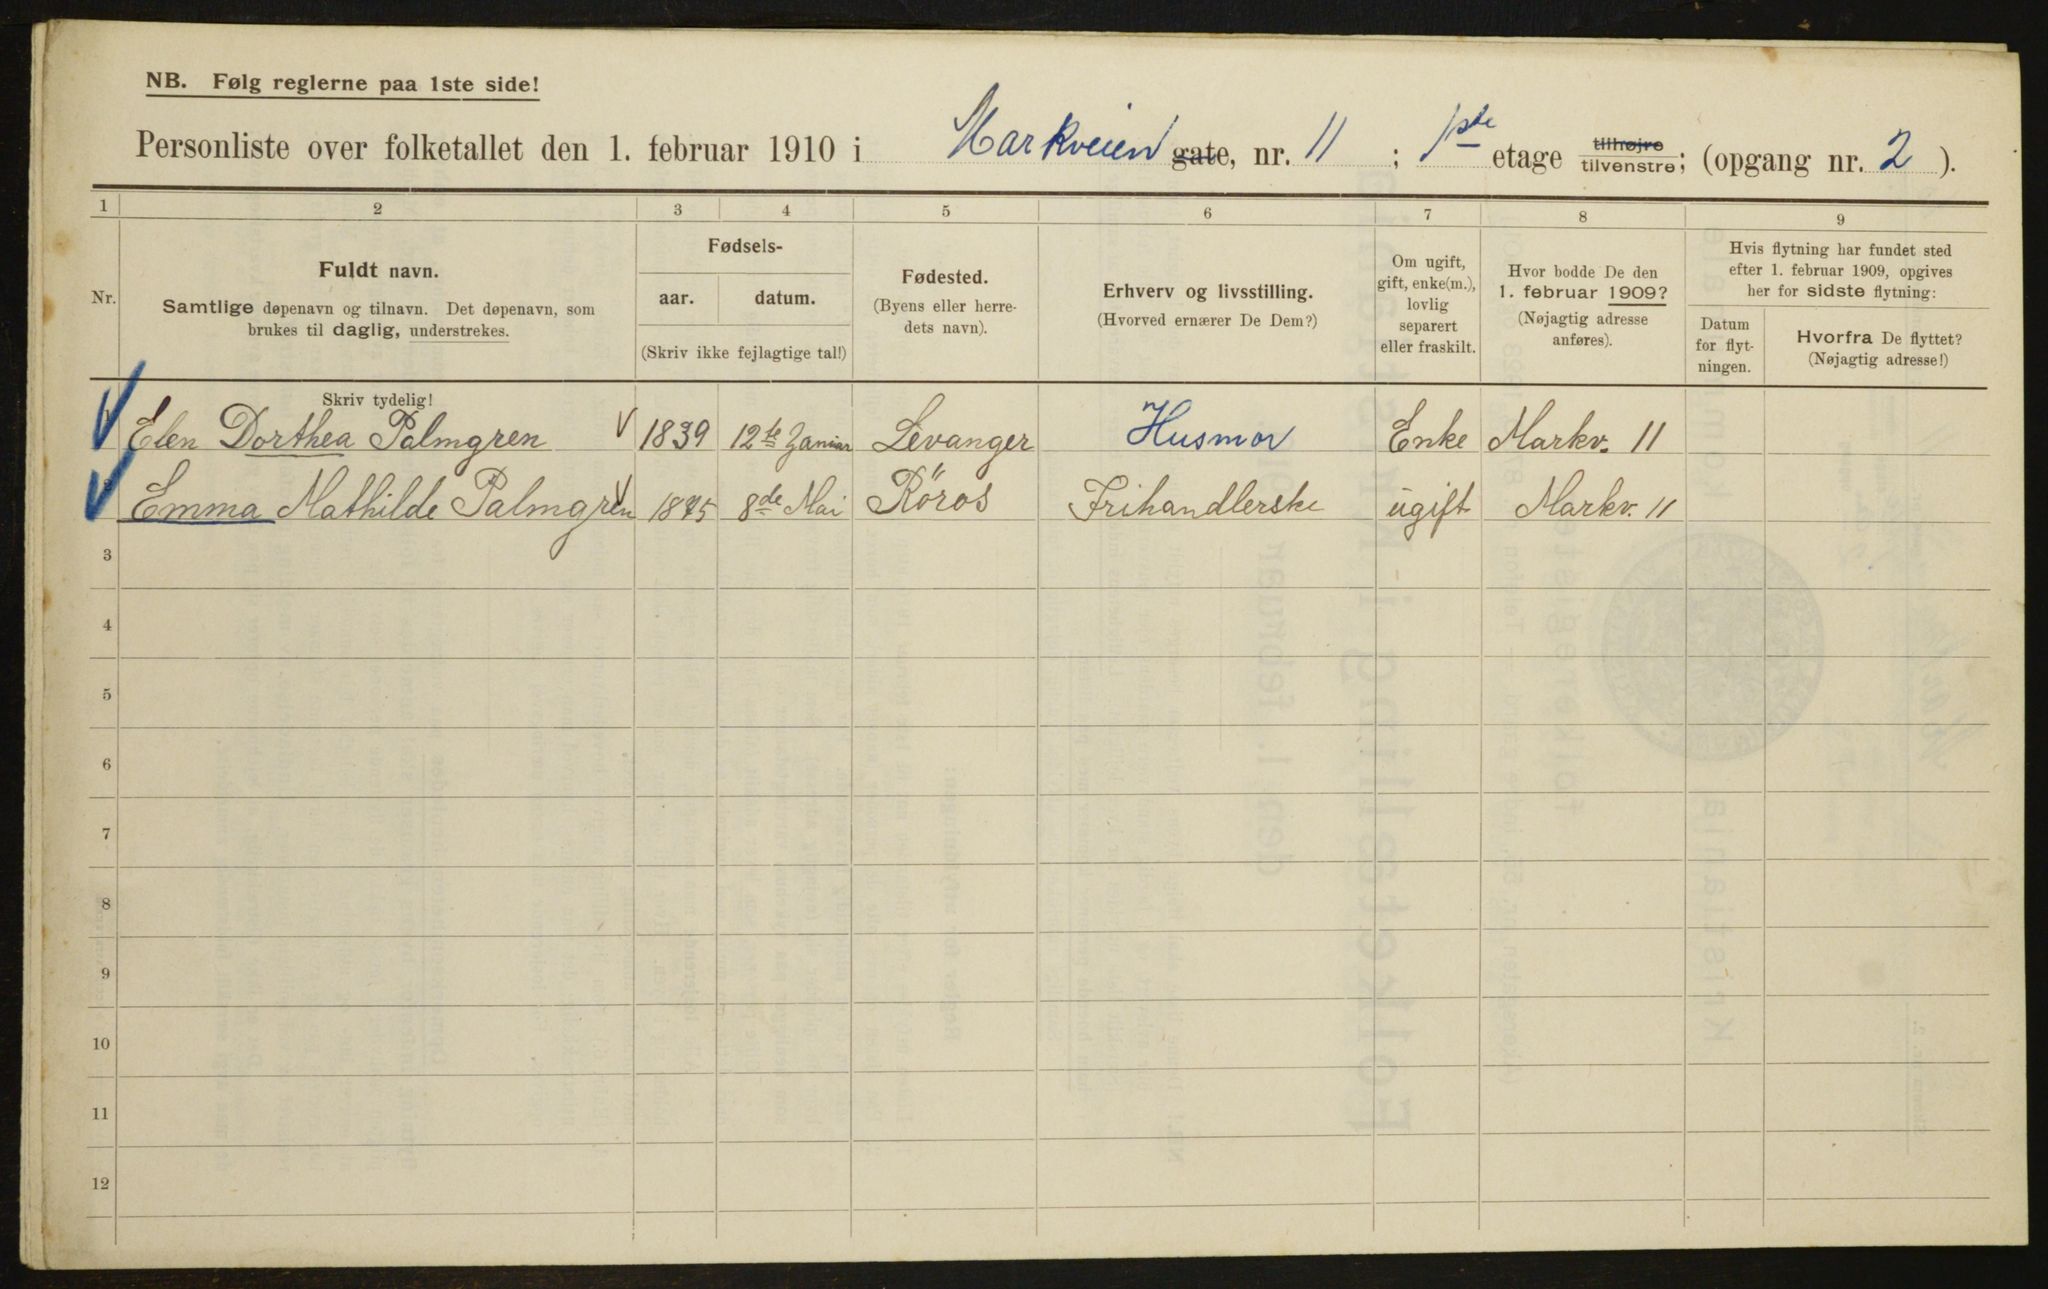 NB. Følg reglerne paa 1ste side!
Personliste over folketallet den 1. februar 1910 i Markveien gate, nr. 11 ; 1ste etage tilhøjre tilvenstre; (opgang nr. 2 ).
1 2 3 4 5 6 7 8 9
Nr.
Fuldt navn.
Samtlige døpenavn og tilnavn. Det døpenavn, som
brukes til daglig, understrekes.
Fødsels-
aar. datum.
(Skriv ikke fejlagtige tal!)
Fødested.
(Byens eller herre-
dets navn).
Erhverv og livsstilling.
(Hvorved ernærer De Dem?)
Om ugift,
gift, enke(m.),
lovlig
separert
eller fraskilt.
Hvor bodde De den
1. februar 1909?
(Nøjagtig adresse
anføres).
Hvis flytning har fundet sted
efter 1. februar 1909, opgives
her for sidste flytning:
Datum
for flyt-
ningen.
Hvorfra De flyttet?
(Nøjagtig adresse!)
Skriv tydelig!
Elen Dorthea Palmgren 1839 12te Januar Levanger Husmor Enke Markv. 11
Emma Mathilde Palmgren 1875 8de Mai Röros Frihandlerske ugift Markv. 11
3
4
5
6
7
8
9
10
11
12